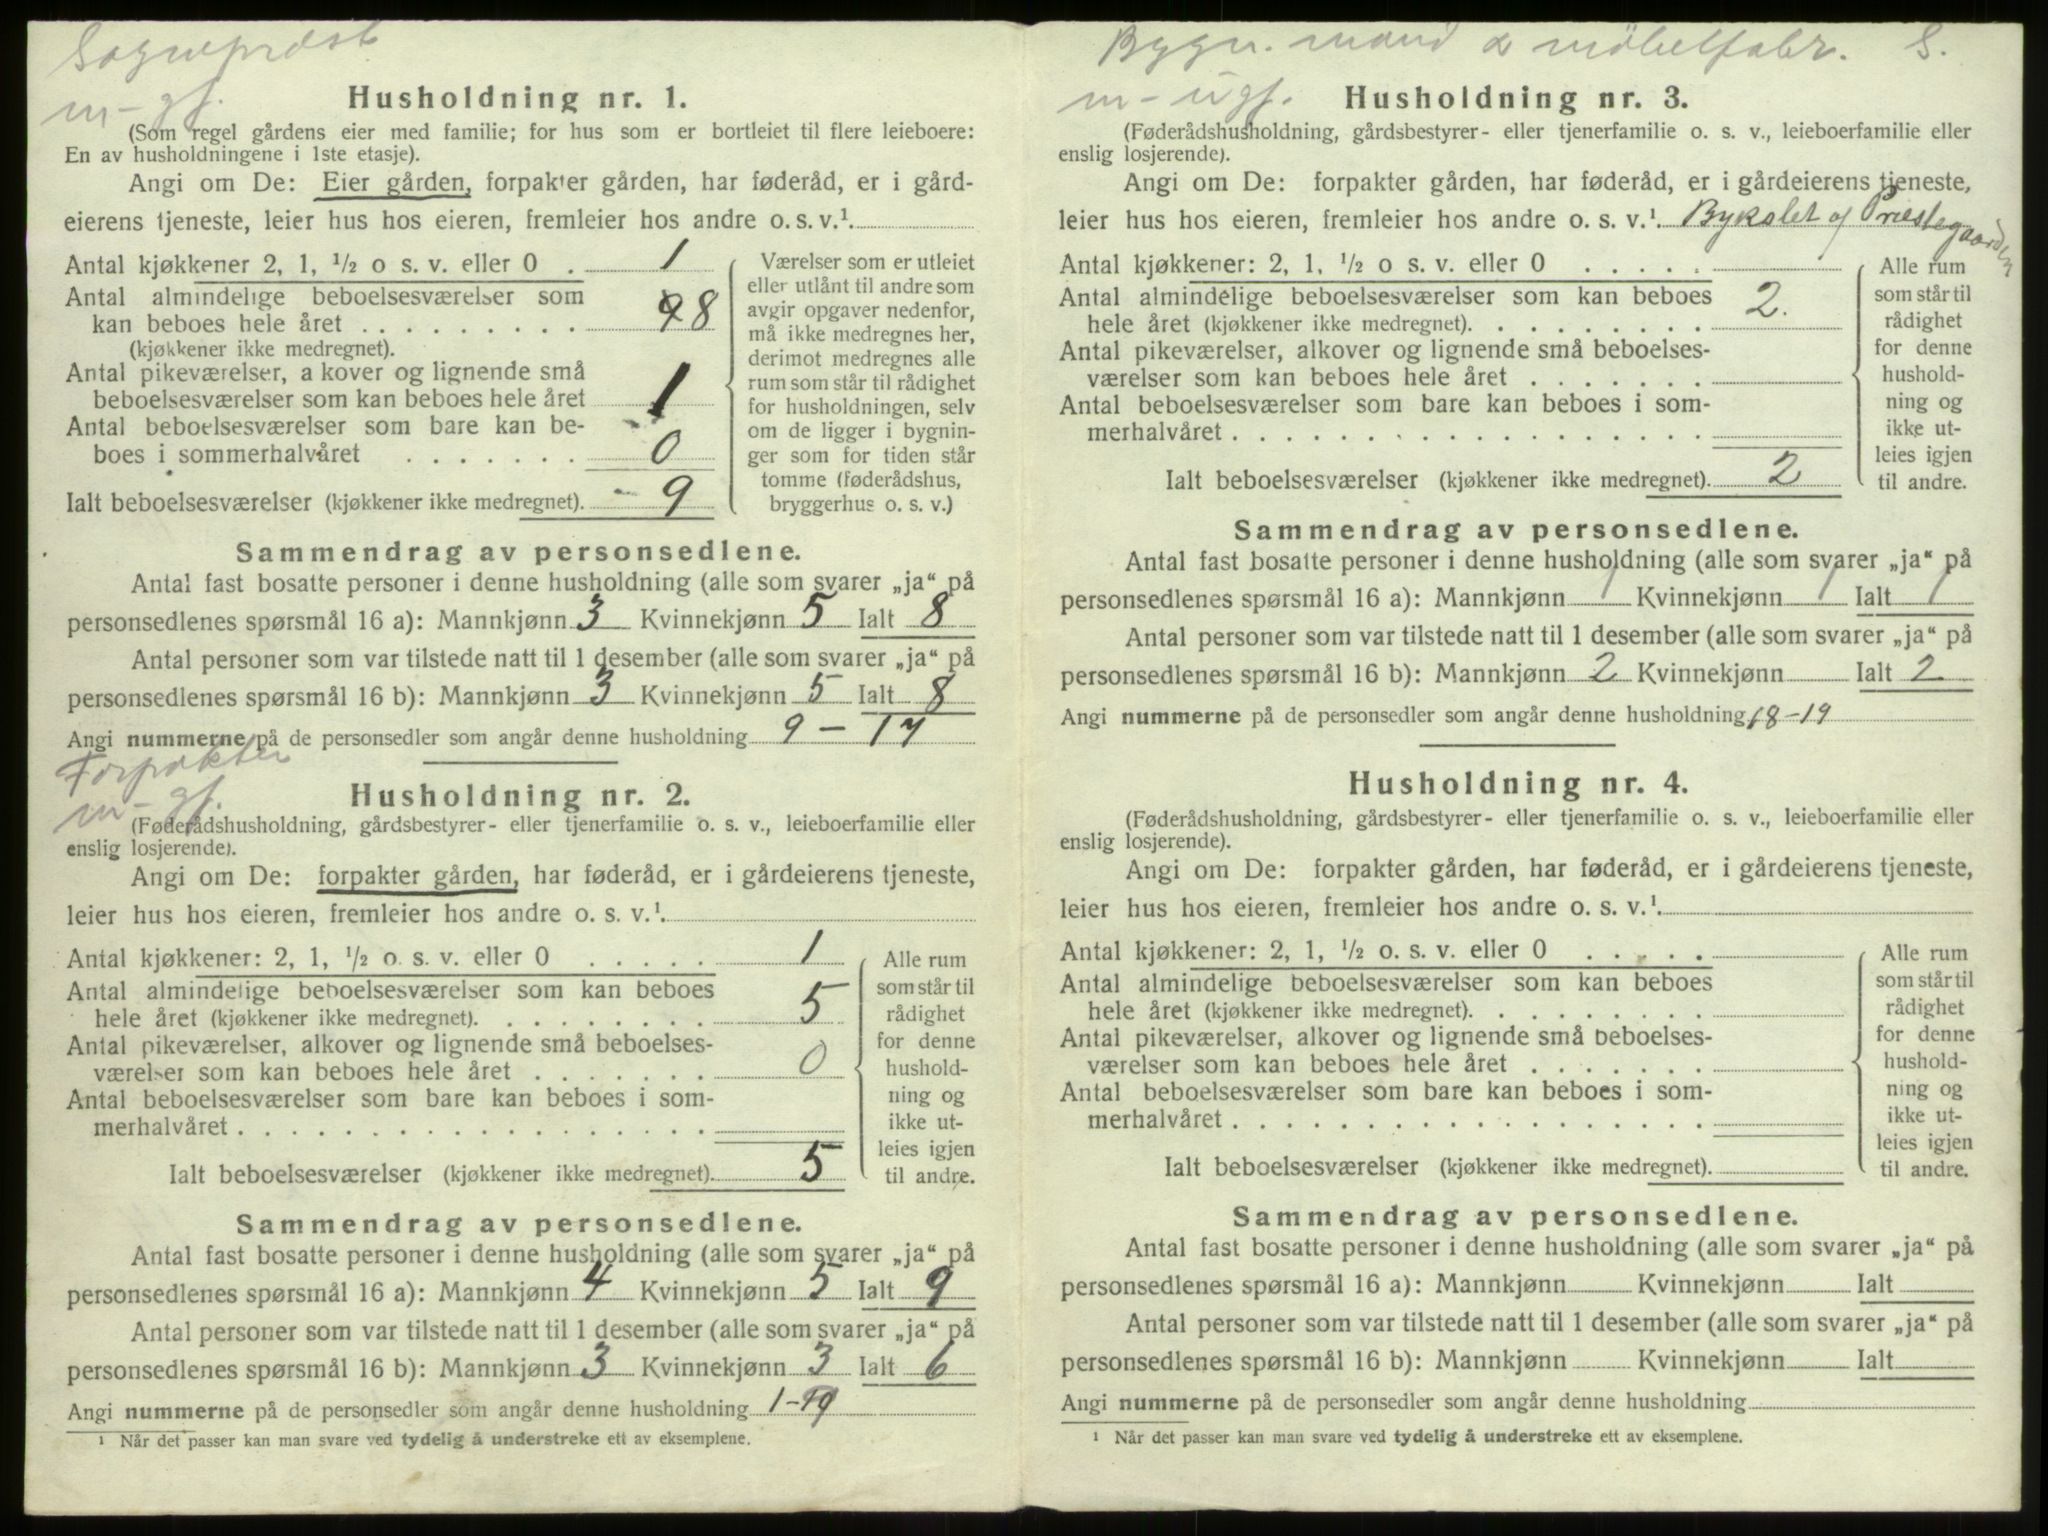 Sogneprest
m - gf.
Husholdning nr. 1.
(Som regel gårdens eier med familie; for hus som er bortleiet til flere leieboere:
En av husholdningene i 1ste etasje).
Angi om De: Eier gården, forpakter gården, har føderåd, er i gård-
eierens tjeneste, leier hus hos eieren, fremleier hos andre o. s. v.¹
Antal kjøkkener 2, 1, ½ o s. v. eller 0 . 1
Antal almindelige beboelsesværelser som
kan beboes hele året . . . . . . . . . 8
(kjøkkener ikke medregnet).
Antal pikeværelser, a kover og lignende små
beboelsesværelser som kan beboes hele året 1
Antal beboelsesværelser som bare kan be-
boes i sommerhalvåret . . . . . . . 0
Ialt beboelsesværelser (kjøkkener ikke medregnet). 9
Værelser som er utleiet
eller utlånt til andre som
avgir opgaver nedenfor,
må ikke medregnes her,
derimot medregnes alle
rum som står til rådighet
for husholdningen, selv
om de ligger i bygnin-
ger som for tiden står
tomme (føderådshus,
bryggerhus o. s. v.)
Sammendrag av personsedlene.
Antal fast bosatte personer i denne husholdning (alle som svarer „ja“ på
personsedlenes spørsmål 16 a): Mannkjønn 3 Kvinnekjønn 5 Ialt 8
Antal personer som var tilstede natt til 1 desember (alle som svarer „ja“ på
personsedlenes spørsmål 16 b): Mannkjønn 3 Kvinnekjønn 5 Ialt 8
Angi nummerne på de personsedler som angår denne husholdning 9 - 17
Forpakter
m - gf.
Husholdning nr. 2.
(Føderådshusholdning, gårdsbestyrer- eller tjenerfamilie o. s. v., leieboerfamilie eller
enslig losjerende).
Angi om De: forpakter gården, har føderåd, er i gårdeierens tjeneste,
leier hus hos eieren, fremleier hos andre o. s. v.¹
Antal kjøkkener: 2, 1, ½ o. s. v. eller 0 . . . . . 1
Antal almindelige beboelsesværelser som kan beboes
hele året (kjøkkener ikke medregnet). . . . . . . . . 5
Antal pikeværelser, alkover og lignende små beboelses-
værelser som kan beboes hele året . . . . . . . 0
Antal beboelsesværelser som bare kan beboes i som-
merhalvåret . . . . . . . . . . . . . . . . . .
Ialt beboelsesværelser (kjøkkener ikke medregnet). 5
Alle rum
som står til
rådighet
for denne
hushold-
ning og
ikke ut-
leies igjen
til andre.
Sammendrag av personsedlene.
Antal fast bosatte personer i denne husholdning (alle som svarer „ja“ på
personsedlenes spørsmål 16 a): Mannkjønn 4 Kvinnekjønn 5 Ialt 9
Antal personer som var tilstede natt til 1 desember (alle som svarer „ja“ på
personsedlenes spørsmål 16 b): Mannkjønn 3 Kvinnekjønn 3 Ialt 6
Angi nummerne på de personsedler som angår denne husholdning 1-
¹ Når det passer kan man svare ved tydelig å understreke ett av eksemplene.
Bygn. mand & møbelfabr. S.
m - ugf.
Husholdning nr. 3.
(Føderådshusholdning, gårdsbestyrer- eller tjenerfamilie o. s. v., leieboerfamilie eller
enslig losjerende).
Angi om De: forpakter gården, har føderåd, er i gårdeierens tjeneste,
leier hus hos eieren, fremleier hos andre o. s. v.¹ Bykslet af Priestegaarden
Antal kjøkkener: 2, 1, ½ o s. v. eller 0 . . . . .
Antal almindelige beboelsesværelser som kan beboes
hele året (kjøkkener ikke medregnet). . . . . . . . . 2.
Antal pikeværelser, alkover og lignende små beboelses-
værelser som kan beboes hele året . . . . . . .
Antal beboelsesværelser som bare kan beboes i som-
merhalvåret . . . . . . . . . . . . . . . . . .
Ialt beboelsesværelser (kjøkkener ikke medregnet). 2
Alle rum
som står til
rådighet
for denne
hushold-
ning og
ikke ut-
leies igjen
til andre.
Sammendrag av personsedlene.
Antal fast bosatte personer i denne husholdning (alle som svarer „ja“ på
personsedlenes spørsmål 16 a): Mannkjønn 1 Kvinnekjønn 1 Ialt 1
Antal personer som var tilstede natt til 1 desember (alle som svarer „ja“ på
personsedlenes spørsmål 16 b): Mannkjønn 2 Kvinnekjønn Ialt 2
Angi nummerne på de personsedler som angår denne husholdning 18-19
Husholdning nr. 4.
(Føderådshusholdning, gårdsbestyrer- eller tjenerfamilie o. s. v., leieboerfamilie eller
enslig losjerende).
Angi om De: forpakter gården, har føderåd, er i gårdeierens tjeneste,
leier hus hos eieren, fremleier hos andre o. s. v.¹
Antal kjøkkener: 2, 1, ½ o. s. v. eller 0 . . . . .
Antal almindelige beboelsesværelser som kan beboes
hele året (kjøkkener ikke medregnet). . . . . . . . .
Antal pikeværelser, alkover og lignende små beboelses-
værelser som kan beboes hele året . . . . . . .
Antal beboelsesværelser som bare kan beboes i som-
merhalvåret . . . . . . . . . . . . . . . . . .
Ialt beboelsesværelser (kjøkkener ikke medregnet).
Alle rum
som står til
rådighet
for denne
hushold-
ning og
ikke ut-
leies igjen
til andre.
Sammendrag av personsedlene.
Antal fast bosatte personer i denne husholdning (alle som svarer „ja“ på
personsedlenes spørsmål 16 a): Mannkjønn Kvinnekjønn Ialt
Antal personer som var tilstede natt til 1 desember (alle som svarer „ja“ på
personsedlenes spørsmål 16 b): Mannkjønn Kvinnekjønn Ialt
Angi nummerne på de personsedler som angår denne husholdning
¹ Når det passer kan man svare ved tydelig å understreke ett av eksemplene.